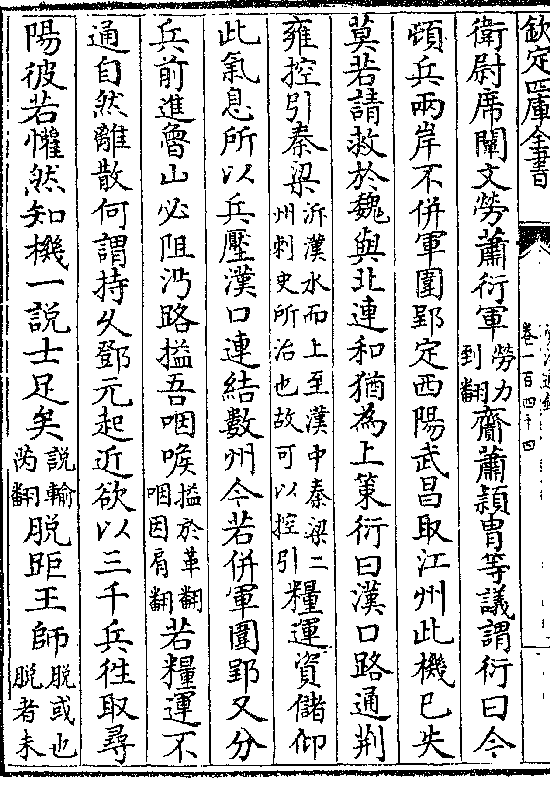 欽定四庫全書
卷一百四十四
衛尉席闡文勞蕭衍軍勞力到翻齎蕭頴胄等議謂衍曰今
頓兵兩岸不併軍圍郢定西陽武昌取江州此機已失
莫若請救於魏與北連和猶為上策衍曰漢口路通荆
雍控引秦梁沂漢水而上至漢中秦梁二州刺史所治也故可以控引糧運資儲仰
此氣息所以兵壓漢口連結數州今若併軍圍郢又分
兵前進魯山必阻沔路搤吾咽喉搤於革翻咽因肩翻若糧運不
通自然離散何謂持久鄧元起近欲以三千兵徃取尋
陽彼若懽然知機一說士足矣說輸芮翻脱距王師脱或也脱者未